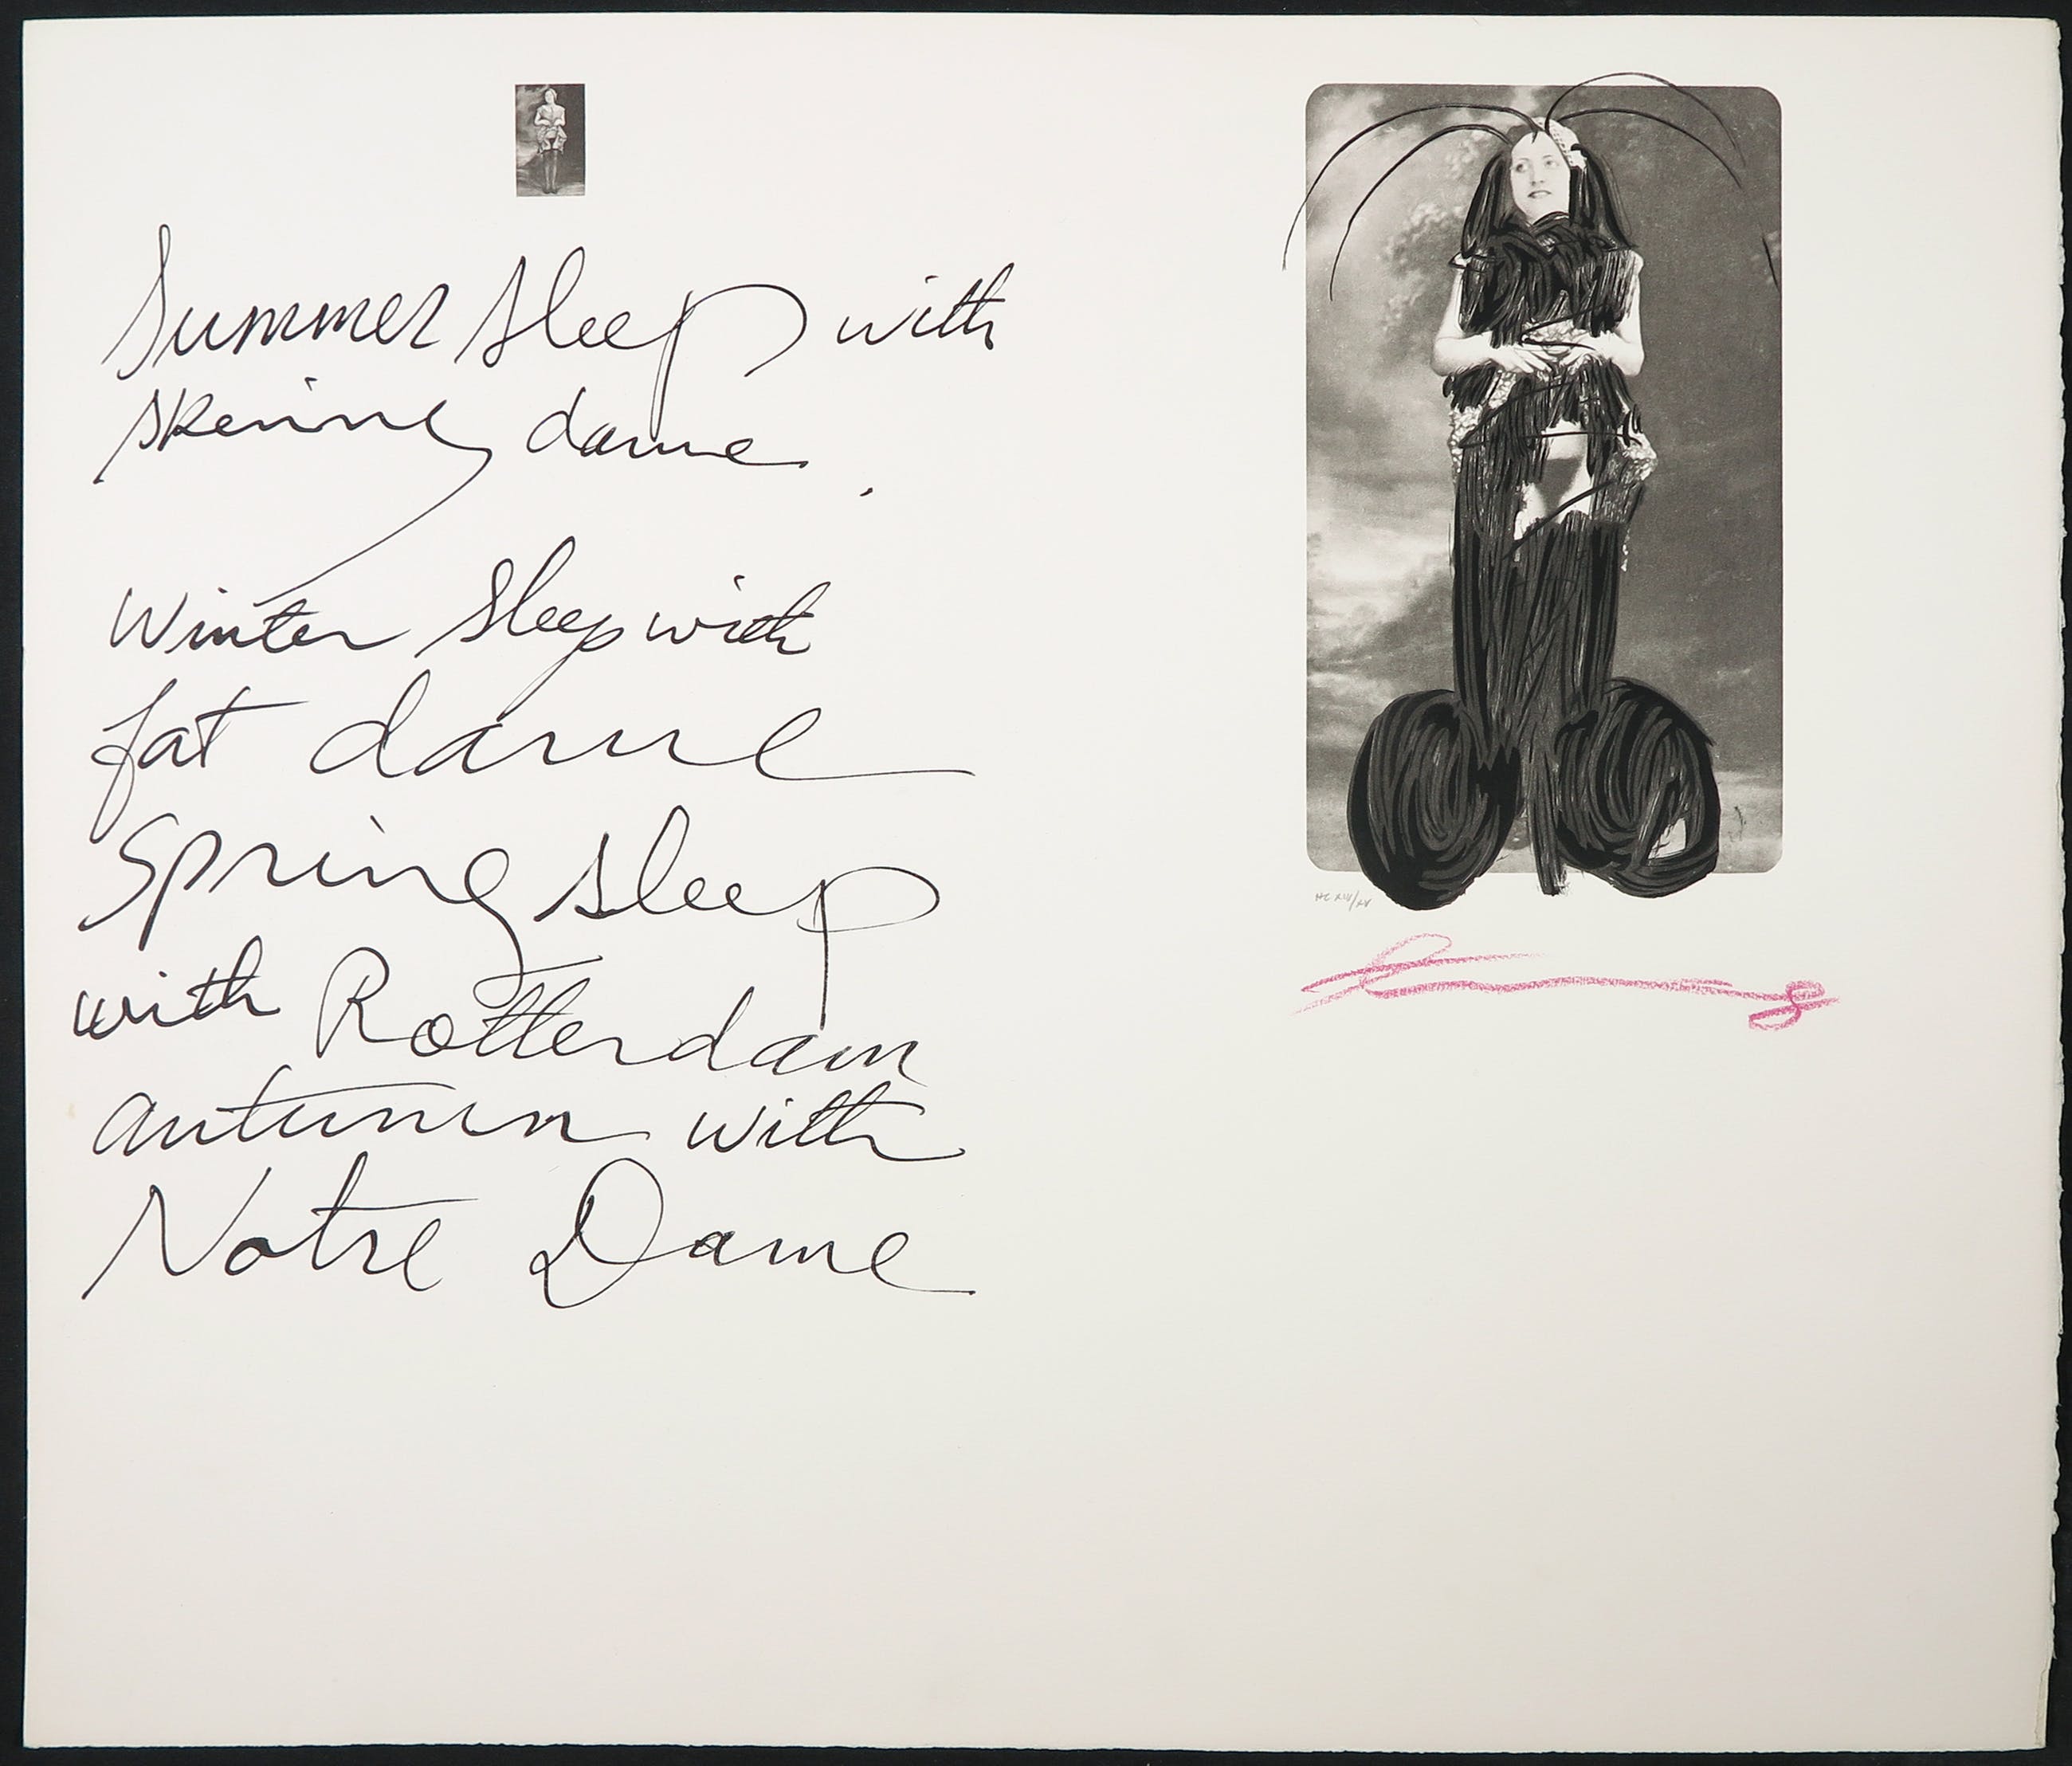 Summer sleep with
skenny dame.
Winter sleep with
fat dame
Spring sleep
with Rotterdam
autumn with
Notre Dame
HC XIV/XV